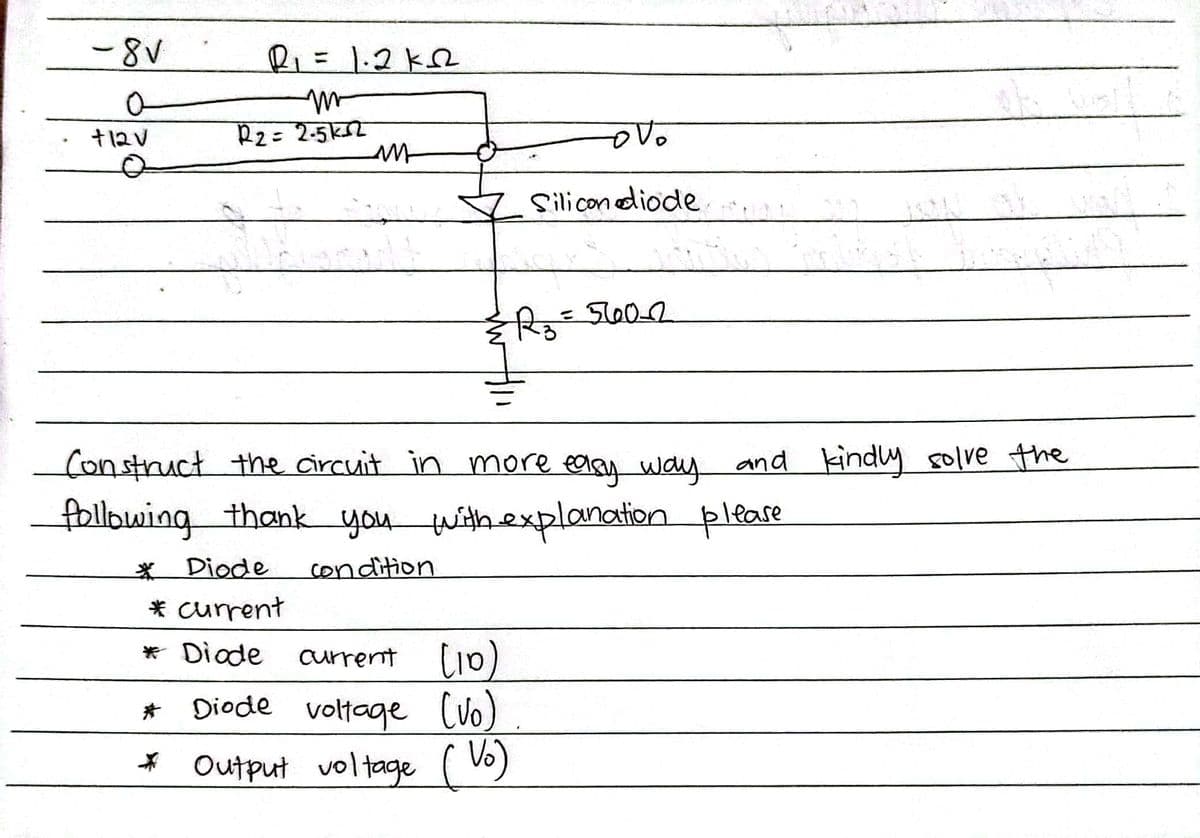 -8V R1 = 1.2 kΩ
+12V R2 = 2.5kΩ
Vo
Silicon diode
R3 = 560Ω
Construct the circuit in more easy way and kindly solve the
following thank you with explanation please
* Diode condition
* current
* Diode current (ID)
* Diode voltage (VD).
* Output voltage (Vo)